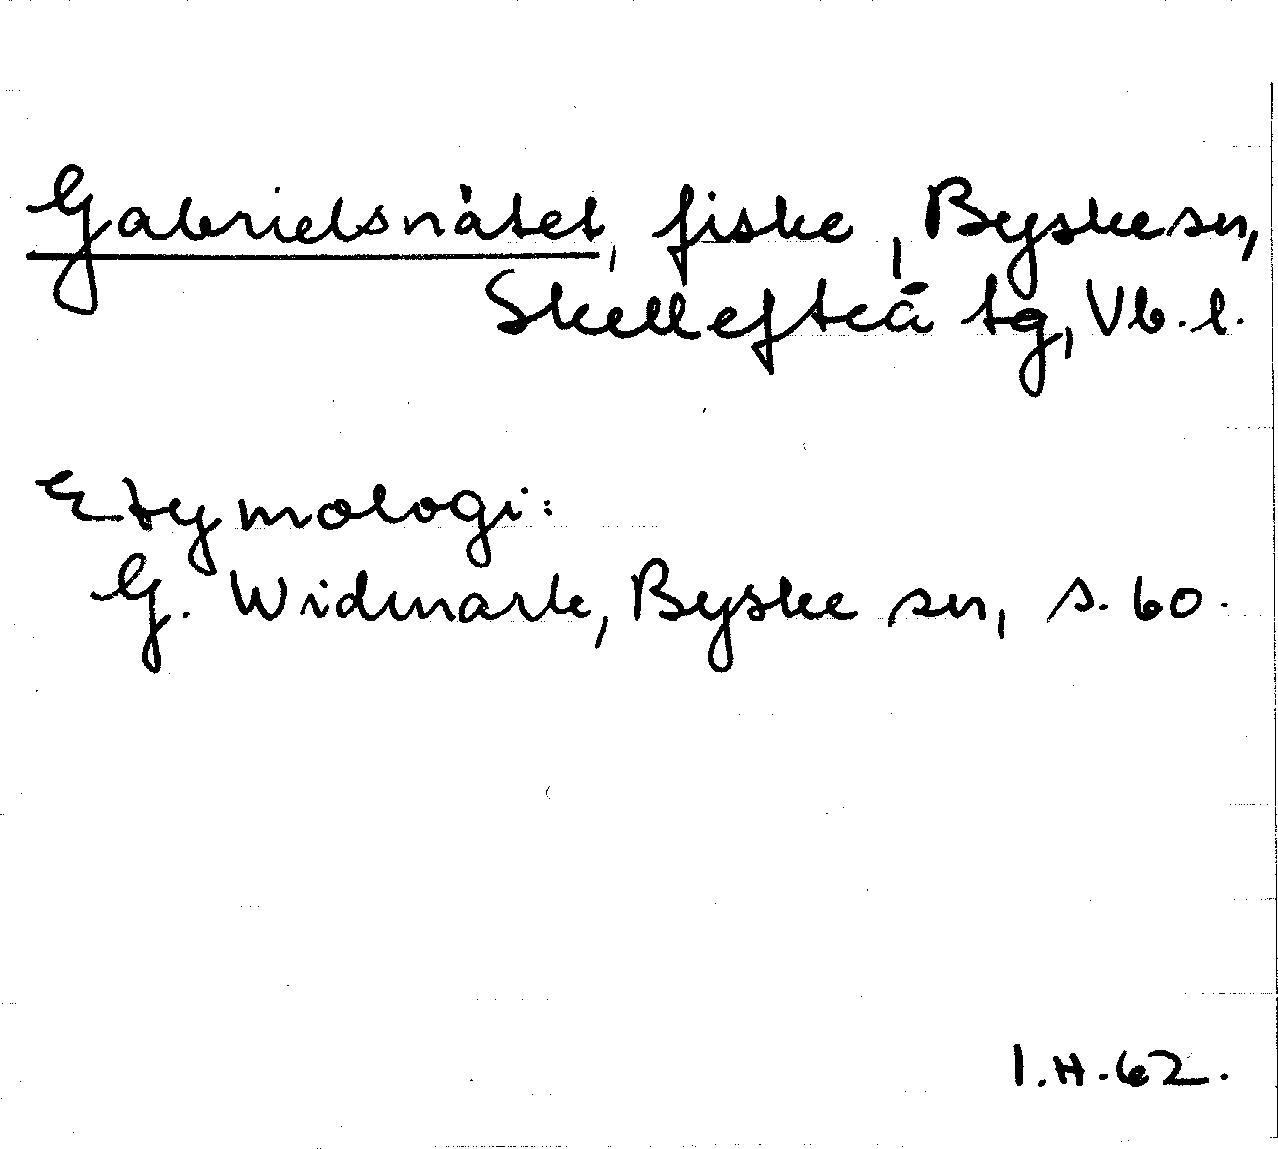 Gabrielsnätet, fiske, Byske sn,
Skellefteå tg, Vb. l.
Etymologi:
G. Widmark, Byske sn, s. 60.
I.H.62.